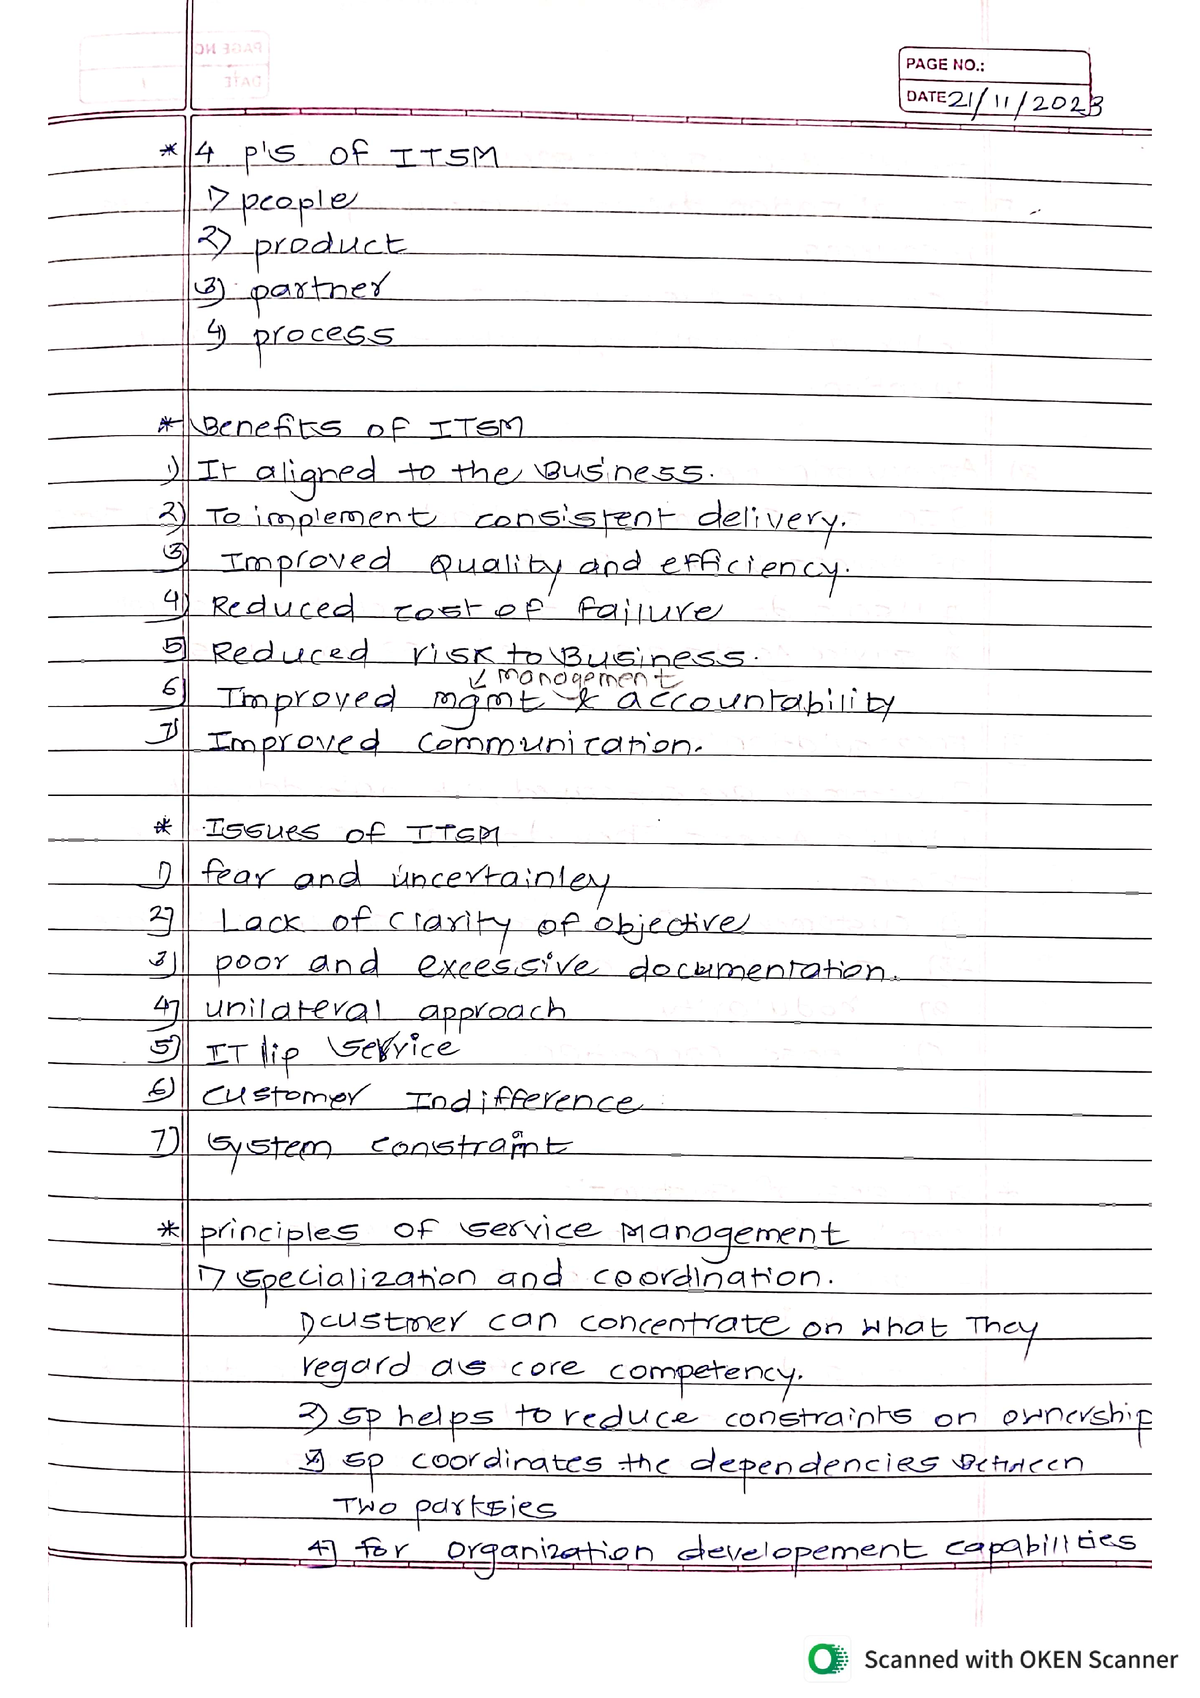 PAGE NO.:
DATE 21/11/2023
* 4 p's of ITSM
1) people
2) product
3) partner
4) process
* Benefits of ITSM
1) It aligned to the Business.
2) To implement consistent delivery.
3) Improved Quality and efficiency.
4) Reduced cost of failure
5) Reduced risk to Business.
management
6) Improved mgmt & accountability
7) Improved communication.
* Issues of ITSM
1) fear and uncertainley
2) Lack of clarity of objective
3) poor and excessive documentation.
4) unilateral approach
5) IT lip service
6) customer Indifference
7) System constraint
* principles of service Management
1) specialization and coordination.
1) custmer can concentrate on what They
regard as core competency.
2) sp helps to reduce constraints on ownership
3) sp coordinates the dependencies Between
Two parties
4) for organization developement capabilities
Scanned with OKEN Scanner